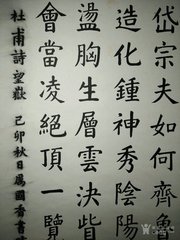 岱宗夫如何齊
造化鍾神秀陰陽
盪胸生層雲決眥
會當凌絕頂一覽
杜甫詩望嶽 己卯秋日國香書